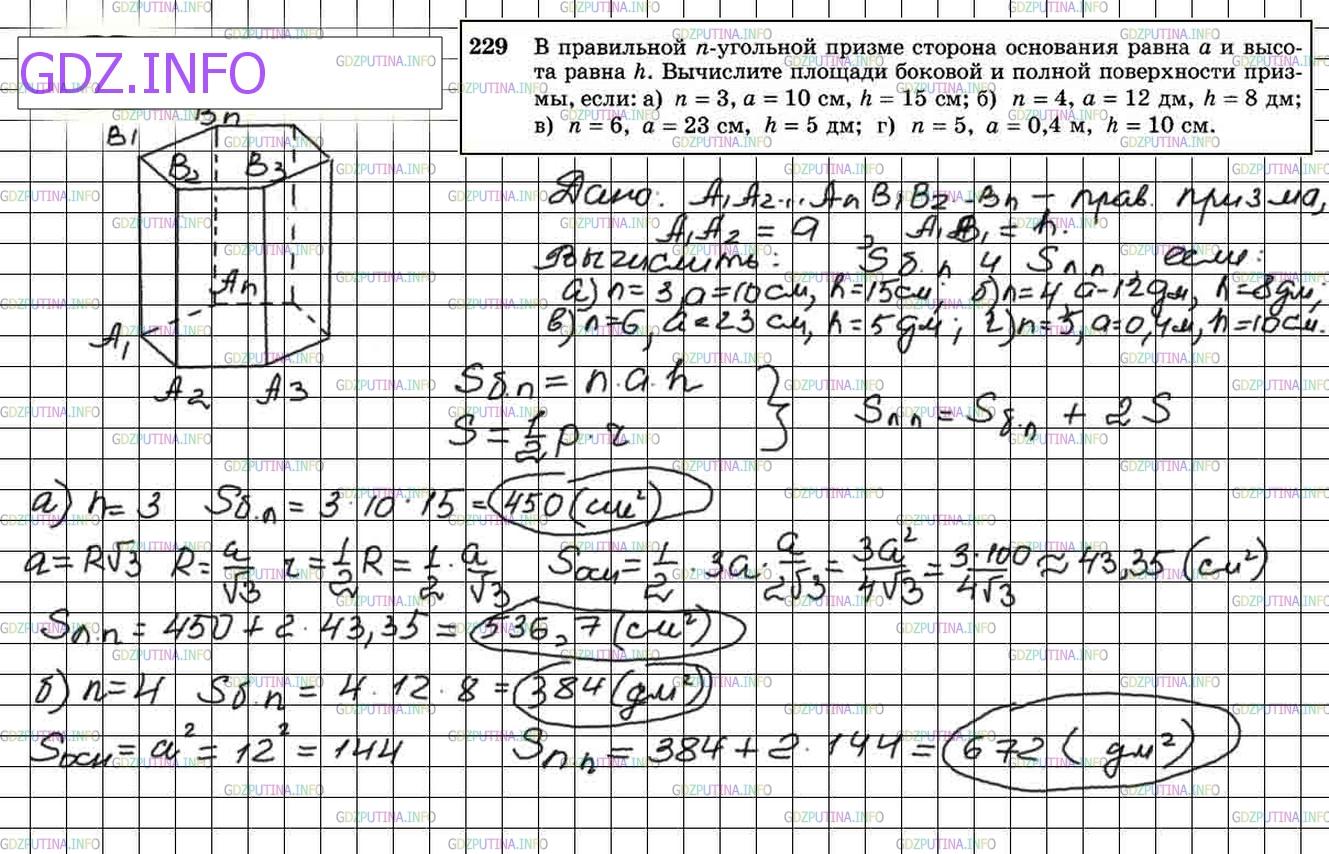 GDZ.INFO
229 В правильной n-угольной призме сторона основания равна a и высо-
та равна h. Вычислите площади боковой и полной поверхности приз-
мы, если: а) n = 3, a = 10 см, h = 15 см; б) n = 4, a = 12 дм, h = 8 дм;
в) n = 6, a = 23 см, h = 5 дм; г) n = 5, a = 0,4 м, h = 10 см.
Bn
B1
B2 B3
An
A1
A2 A3
Дано: A1A2...An B1B2...Bn – прав. призма,
A1A2 = a, A1B1 = h.
Вычислить: Sб.п и Sпп, если:
а) n = 3, a = 10 см, h = 15 см; б) n = 4 a – 12 дм, h = 8 дм;
в) n = 6, a = 23 см, h = 5 дм; г) n = 5, a = 0,4 м, h = 10 см.
Sб.п = n · a · h
S = 1/2 p · r } Sпп = Sб.п + 2S
а) n = 3 Sб.п = 3 · 10 · 15 = 450 (см²)
a = R√3 R = a/√3 r = 1/2 R = 1/2 · a/√3 Sосн = 1/2 · 3a · a/2√3 = 3a²/4√3 = 3·100/4√3 ≈ 43,35 (см²)
Sп.п = 450 + 2 · 43,35 = 536,7 (см²)
б) n = 4 Sб.п = 4 · 12 · 8 = 384 (дм²)
Sосн = a² = 12² = 144 Sпп = 384 + 2 · 144 = 672 (дм²)
GDZPUTINA.INFO